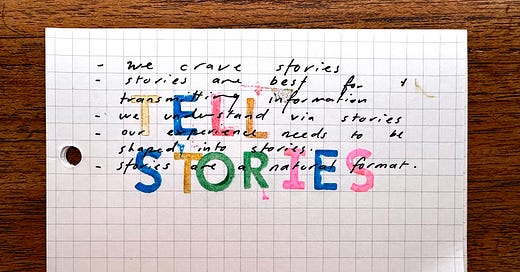 - we crave stories
- stories are best for
transmitting information
TELL
- we understand via stories
- our experience needs to be
shaped into stories.
- stories are a natural format.
STORIES